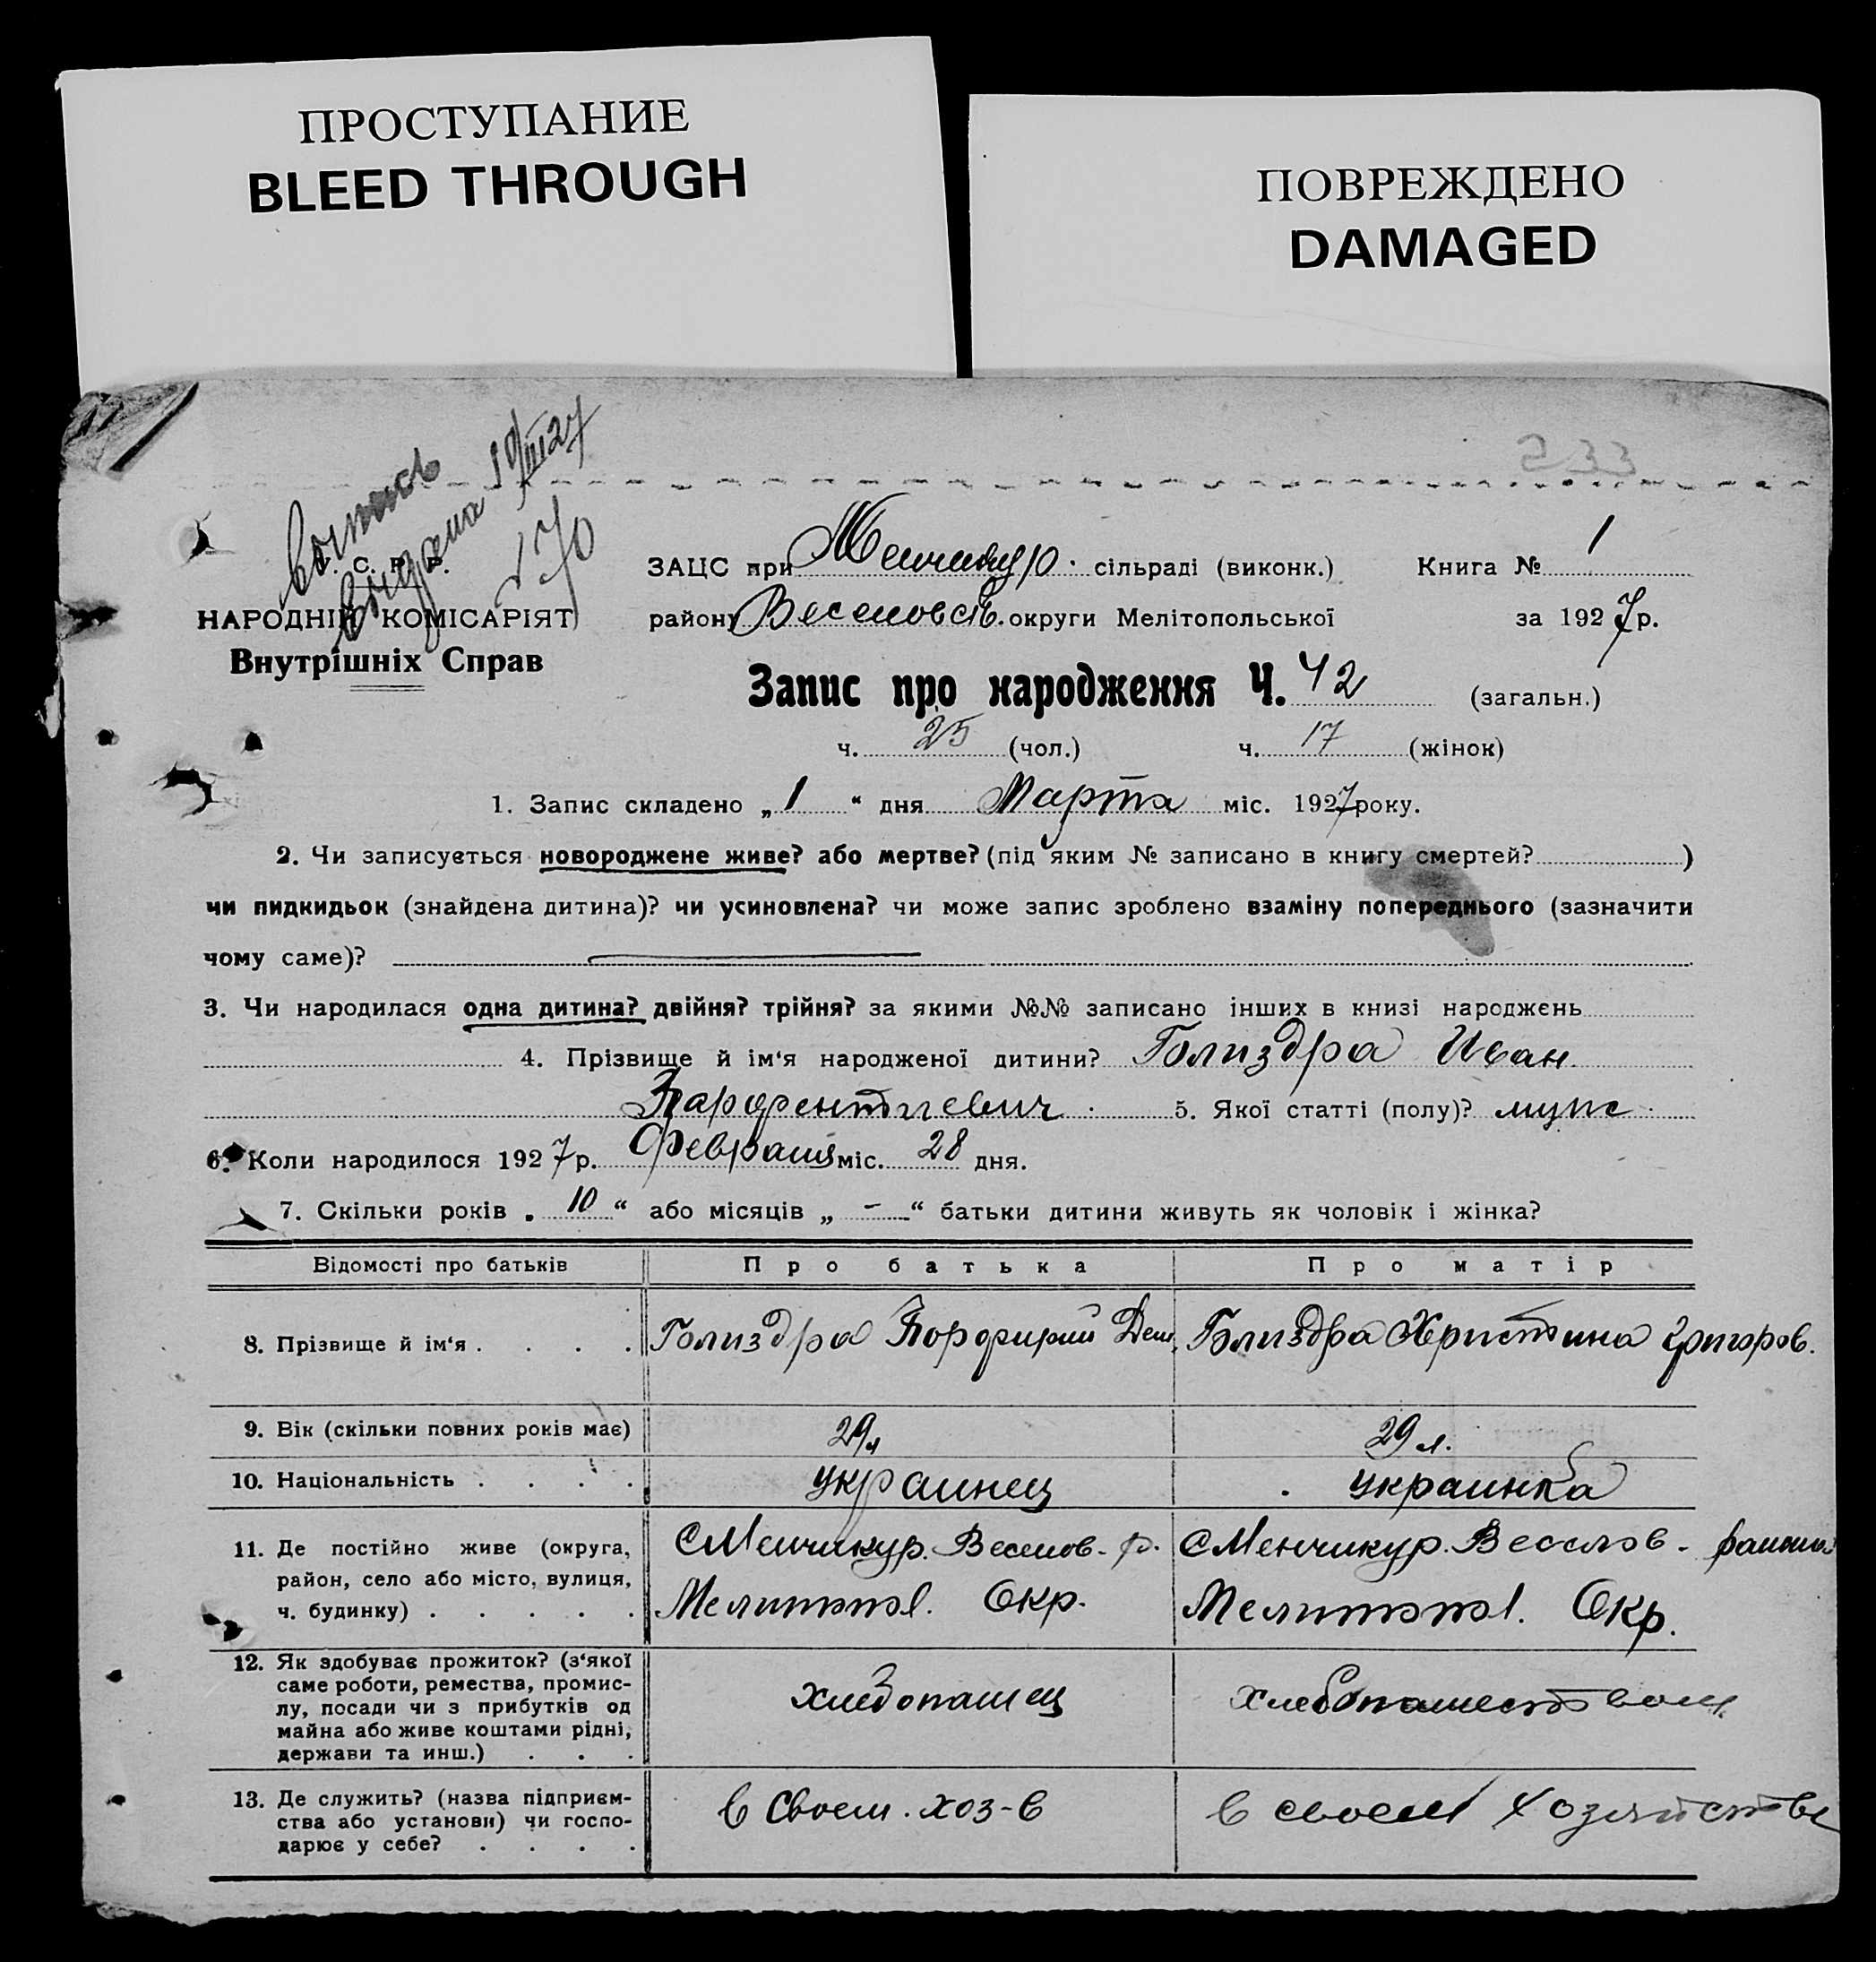 ПРОСТУПАНИЕ
BLEED THROUGH
ПОВРЕЖДЕНО
DAMAGED
233
Выпись
Выдана 19/III 27
170
У. С. Р. Р.
НАРОДНІЙ КОМІСАРІЯТ
Внутрішніх Справ
ЗАЦС при Менчикур. сільраді (виконк.) Книга № 1
району Веселовск. округи Мелітопольської за 1927 р.
Запис про народження Ч. 42 (загальн.)
ч. 25 (чол.) ч. 17 (жінок)
1. Запис складено „1“ дня Марта міс. 1927 року.
2. Чи записується новороджене живе? або мертве? (під яким № записано в книгу смертей? )
чи пидкидьок (знайдена дитина)? чи усиновлена? чи може запис зроблено взаміну попереднього (зазначити
чому саме)?
3. Чи народилася одна дитина? двійня? трійня? за якими №№ записано інших в книзі народжень
4. Прізвище й ім'я народженої дитини? Голиздра Иван
Парфентиевич 5. Якої статті (полу)? муж.
6. Коли народилося 1927 р. Февраля міс. 28 дня.
7. Скільки років „10“ або місяців „ – “ батьки дитини живуть як чоловік і жінка?
Відомості про батьків Про батька Про матір
8. Прізвище й ім'я . . . . Голиздра Порфирий Дем. Голиздра Христина Григоров.
9. Вік (скільки повних років має) 29 л 29 л.
10. Національність . . . . украинец украинка
11. Де постійно живе (округа, С Менчикур. Веселов. р. С Менчикур. Веселов. района
район, село або місто, вулиця,
ч. будинку) . . . . . Мелитопол. Окр. Мелитопол. Окр.
12. Як здобуває прожиток? (з'якої
саме роботи, ремества, промис-
лу, посади чи з прибутків од хлебопашец хлебопашеством
майна або живе коштами рідні,
держави та инш.) . . .
13. Де служить? (назва підприєм- в своем. хоз-в в своем хозяйстве
ства або установи) чи госпо-
дарює у себе? . . . .